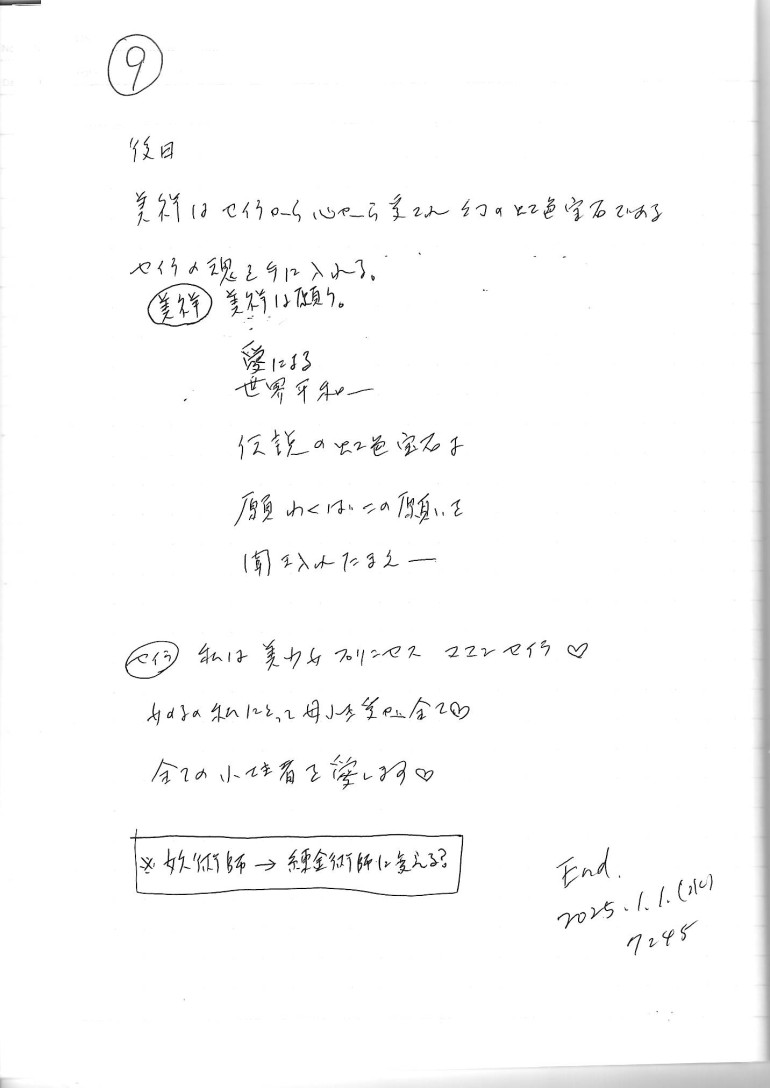 ⑨
後日
美祥はセイラから心から愛され 幻の虹色宝石である
セイラの魂を手に入れる。
美祥 美祥は願う。
愛による
世界平和ー
伝説の虹色宝石よ
願わくばこの願いを
聞き入れたまえー
セイラ 私は美少女プリンセス ココン セイラ♡
私にとって 愛が全て♡
全ての小生者を愛します♡
※妖術師→錬金術師に変える?
End.
2025.1.1.(水)
7:45